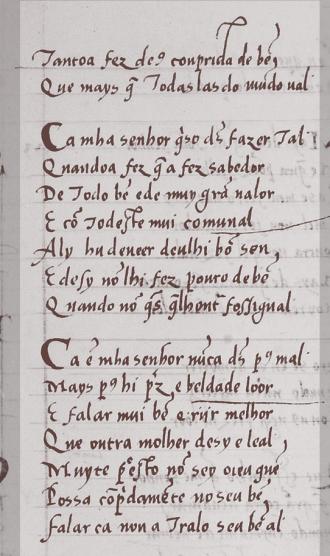 Tantoa fez deꝯ conprida de bẽ,
Que mays q̃ Todas las do mũdo ual
Ca mha senhor q̃so dṡ fazer Tal
Quandoa fez q̃ a fez sabedor
De Todo bẽ e de muy grã ualor
E cõ Todeſte mui comunal
Aly hu deueer deulhi bõ sen,
E desy nõ lhi fez pouco de bẽ
Quando nõ q̃s q̃lhout̃ foſſigual
Ca ẽ mha senhor nũca dṡ pꝯ mal
Mays pꝯ hi p̃z e beldade loor
E falar mui bẽ e rijr melhor
Que outra molher desy e leal,
Muyte p̃eſto nõ sey oieu quẽ
Possa cõp̃damẽte no seu bẽ,
falar ca non a Tralo seu bẽ al